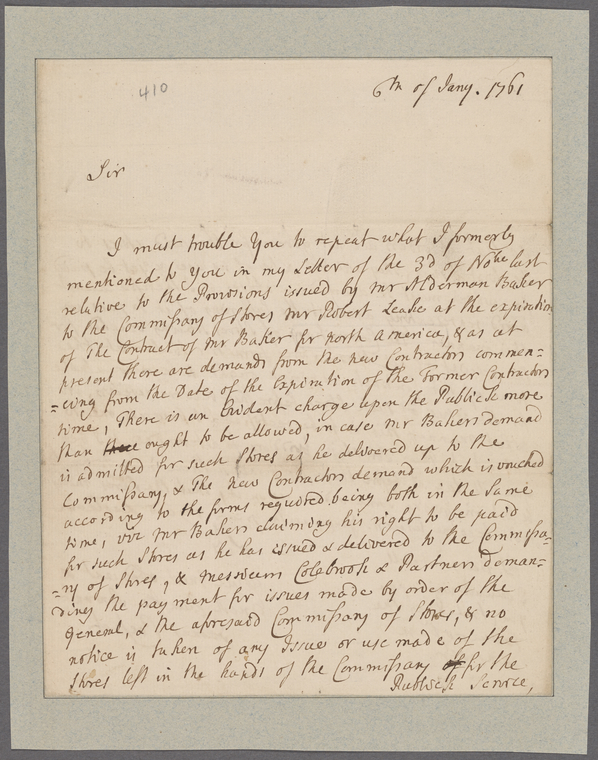 410
6th of Jany. 1761
Sir
I must trouble You to repeat what I formerly
mentioned to You in my Letter of the 3d of Nobre last
relative to the Provisions issued by mr Alderman Baker
to the Commissary of Stores mr Robert Leake at the expiration
of The Contract of mr Baker for north America, & as at
present there are demands from the new Contractors commen=
=cing from the Date of the Expiration of the Former Contractors
time, There is an Evident charge upon the Publick more
than ought to be allowed, in case mr Bakers demand
is admitted for such Stores as he delivered up to the
Commissary, & The new Contractors demand which is vouched
according to the forms required being both in the Same
time, viz mr Bakers claiming his right to be paid
for such Stores as he has issued & delivered to the Commissa=
=ry of Stores, & messieurs Colebrook & Partners deman=
=ding the payment for issues made by order of the
General, & the aforesaid Commissary of Stores, & no
notice is taken of any Issue or use made of the
Stores left in the hands of the Commissary for the
Publick Service,